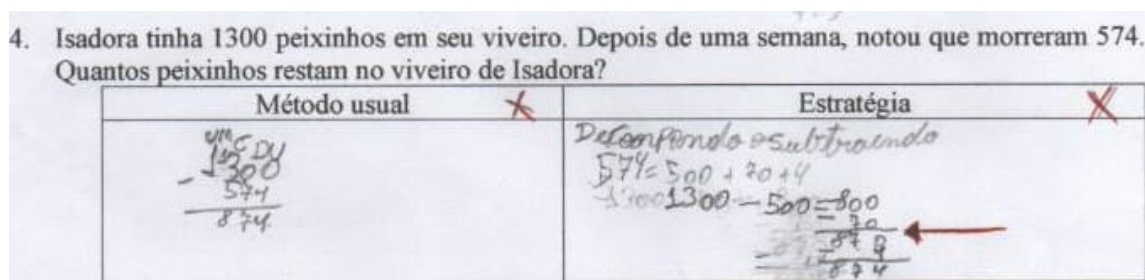 4. Isadora tinha 1300 peixinhos em seu viveiro. Depois de uma semana, notou que morreram 574.
Quantos peixinhos restam no viveiro de Isadora?
Método usual
UM C D U
1300
- 574
874
Estratégia
Decompondo o subtraendo
574 = 500 + 70 + 4
1300 1300 - 500 = 800
- 70
87
- 4
874